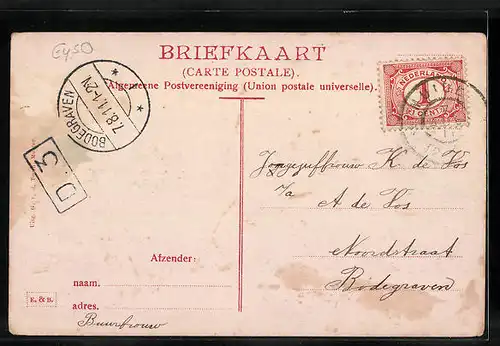 BRIEFKAART
(CARTE POSTALE).
Algemeene Postvereeniging (Union postale universelle).
NEDERLAND
1
CENT
BODEGRAVEN
7.8.11.1-2N
D 3
K de Vos
A de Vos
Noordstraat
Bodegraven
Afzender:
naam.
adres.
Buurvrouw
E. & B.